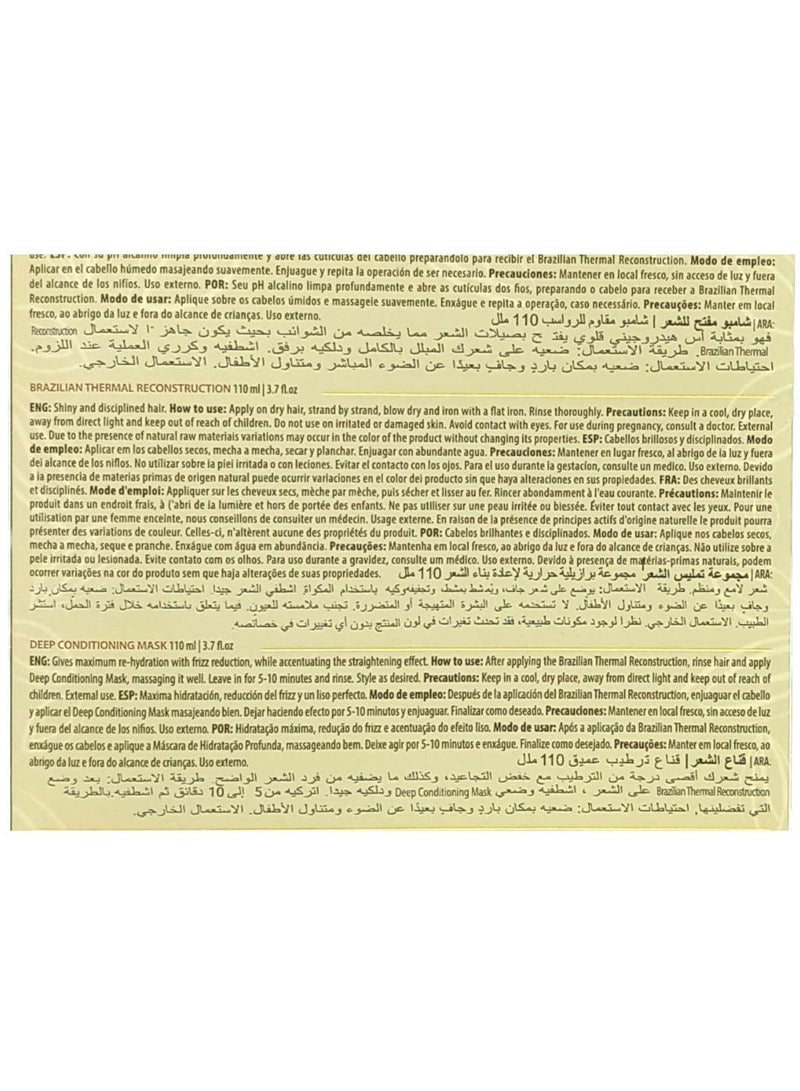 use. ESP: Con su pH alcalino limpia profundamente y abre las cutículas del cabello preparándolo para recibir el Brazilian Thermal Reconstruction. Modo de empleo:
Aplicar en el cabello húmedo masajeando suavemente. Enjuague y repita la operación de ser necesario. Precauciones: Mantener en local fresco, sin acceso de luz y fuera
del alcance de los niños. Uso externo. POR: Seu pH alcalino limpa profundamente e abre as cutículas dos fios, preparando o cabelo para receber a Brazilian Thermal
Reconstruction. Modo de usar: Aplique sobre os cabelos úmidos e massageie suavemente. Enxágue e repita a operação, caso necessário. Precauções: Manter em local
fresco, ao abrigo da luz e fora do alcance de crianças. Uso externo. ARA: | شامبو مفتح للشعر | شامبو مقاوم للرواسب 110 ملل
فهو بمثابة أس هيدروجيني قلوي يفتح بصيلات الشعر مما يخلصه من الشوائب بحيث يكون جاهز ١٠ لاستعمال Reconstruction
Brazilian Thermal. طريقة الاستعمال: ضعيه على شعرك المبلل بالكامل ودلكيه برفق. اشطفيه وكرري العملية عند اللزوم.
احتياطات الاستعمال: ضعيه بمكان باردٍ وجافٍ بعيدًا عن الضوء المباشر ومتناول الأطفال. الاستعمال الخارجي.
BRAZILIAN THERMAL RECONSTRUCTION 110 ml | 3.7 fl.oz
ENG: Shiny and disciplined hair. How to use: Apply on dry hair, strand by strand, blow dry and iron with a flat iron. Rinse thoroughly. Precautions: Keep in a cool, dry place,
away from direct light and keep out of reach of children. Do not use on irritated or damaged skin. Avoid contact with eyes. For use during pregnancy, consult a doctor. External
use. Due to the presence of natural raw materials variations may occur in the color of the product without changing its properties. ESP: Cabellos brillosos y disciplinados. Modo
de empleo: Aplicar em los cabellos secos, mecha a mecha, secar y planchar. Enjuagar con abundante agua. Precauciones: Mantener en lugar fresco, al abrigo de ia luz y fuera
dei alcance de los niflos. No utilizar sobre la piei irritada o con leciones. Evitar el contacto con los ojos. Para el uso durante la gestacíon, consulte un medico. Uso externo. Devido
a la presencia de materias primas de origen natural puede ocurrir variaciones en el color dei producto sin que haya alteraciones en sus propiedades. FRA: Des cheveux brillants
et disciplinés. Mode d'emploi: Appliquer sur les cheveux secs, mèche par mèche, puis sécher et lisser au fer. Rincer abondamment à l'eau courante. Précautions: Maintenir le
produit dans un endroit frais, à ('abri de la lumière et hors de portée des enfants. Ne pas utiliser sur une peau irritée ou biessée. Éviter tout contact avec les yeux. Pour une
utilisation par une femme enceinte, nous conseillons de consuiter un médecin. Usage externe. En raison de la présence de principes actifs d'origine naturelle le produit pourra
présenter des variations de couleur. Celles-ci, n'altèrent aucune des propriétés du produit. POR: Cabelos brilhantes e disciplinados. Modo de usar: Aplique nos cabelos secos,
mecha a mecha, seque e pranche. Enxágue com água em abundância. Precauções: Mantenha em local fresco, ao abrigo da luz e fora do alcance de crianças. Não utilize sobre a
pele irritada ou lesionada. Evite contato com os olhos. Para uso durante a gravidez, consulte um médico. Uso externo. Devido à presença de matérias-primas naturais, podem
ocorrer variações na cor do produto sem que haja alterações de suas propriedades. ARA: | مجموعة تمليس الشعر | مجموعة برازيلية حرارية لإعادة بناء الشعر 110 ملل
شعر لامع ومنظم. طريقة الاستعمال: يوضع على شعر جاف، ويُمشط بمشط، وتجفيفه وكيه باستخدام المكواة. اشطفي الشعر جيدا. احتياطات الاستعمال: ضعيه بمكان بارد
وجافٍ بعيدًا عن الضوء ومتناول الأطفال. لا تستخدمه على البشرة المتهيجة أو المتضررة. تجنب ملامسته للعيون. فيما يتعلق باستخدامه خلال فترة الحمل، استشر
الطبيب. الاستعمال الخارجي. نظرا لوجود مكونات طبيعية، فقد تحدث تغيرات في لون المنتج بدون أي تغييرات في خصائصه.
DEEP CONDITIONING MASK 110 ml | 3.7 fl.oz
ENG: Gives maximum re-hydration with frizz reduction, while accentuating the straightening effect. How to use: After applying the Brazilian Thermal Reconstruction, rinse hair and apply
Deep Conditioning Mask, massaging it well. Leave in for 5-10 minutes and rinse. Style as desired. Precautions: Keep in a cool, dry place, away from direct light and keep out of reach of
children. External use. ESP: Maxima hidratación, reducción del frizz y un liso perfecto. Modo de empleo: Después de la aplicación del Brazilian Thermal Reconstruction, enjuaguar el cabello
y aplicar el Deep Conditioning Mask masajeando bien. Dejar haciendo efecto por 5-10 minutos y enjuaguar. Finalizar como deseado. Precauciones: Mantener en local fresco, sin acceso de luz
y fuera del alcance de los niños. Uso externo. POR: Hidratação máxima, redução do frizz e acentuação do efeito liso. Modo de usar: Após a aplicação da Brazilian Thermal Reconstruction,
enxágue os cabelos e aplique a Máscara de Hidratação Profunda, massageando bem. Deixe agir por 5-10 minutos e enxágue. Finalize como desejado. Precauções: Manter em local fresco, ao
abrigo da luz e fora do alcance de crianças. Uso externo. ARA: | قناع الشعر | قناع ترطيب عميق 110 ملل
يمنح شعرك أقصى درجة من الترطيب مع خفض التجاعيد، وكذلك ما يضفيه من فرد الشعر الواضح. طريقة الاستعمال: بعد وضع
Brazilian Thermal Reconstruction على الشعر ، اشطفيه وضعي Deep Conditioning Mask ودلكيه جيدا. اتركيه من 5 إلى 10 دقائق ثم اشطفيه.بالطريقة
التي تفضلينها, احتياطات الاستعمال: ضعيه بمكان باردٍ وجافٍ بعيدًا عن الضوء ومتناول الأطفال. الاستعمال الخارجي.